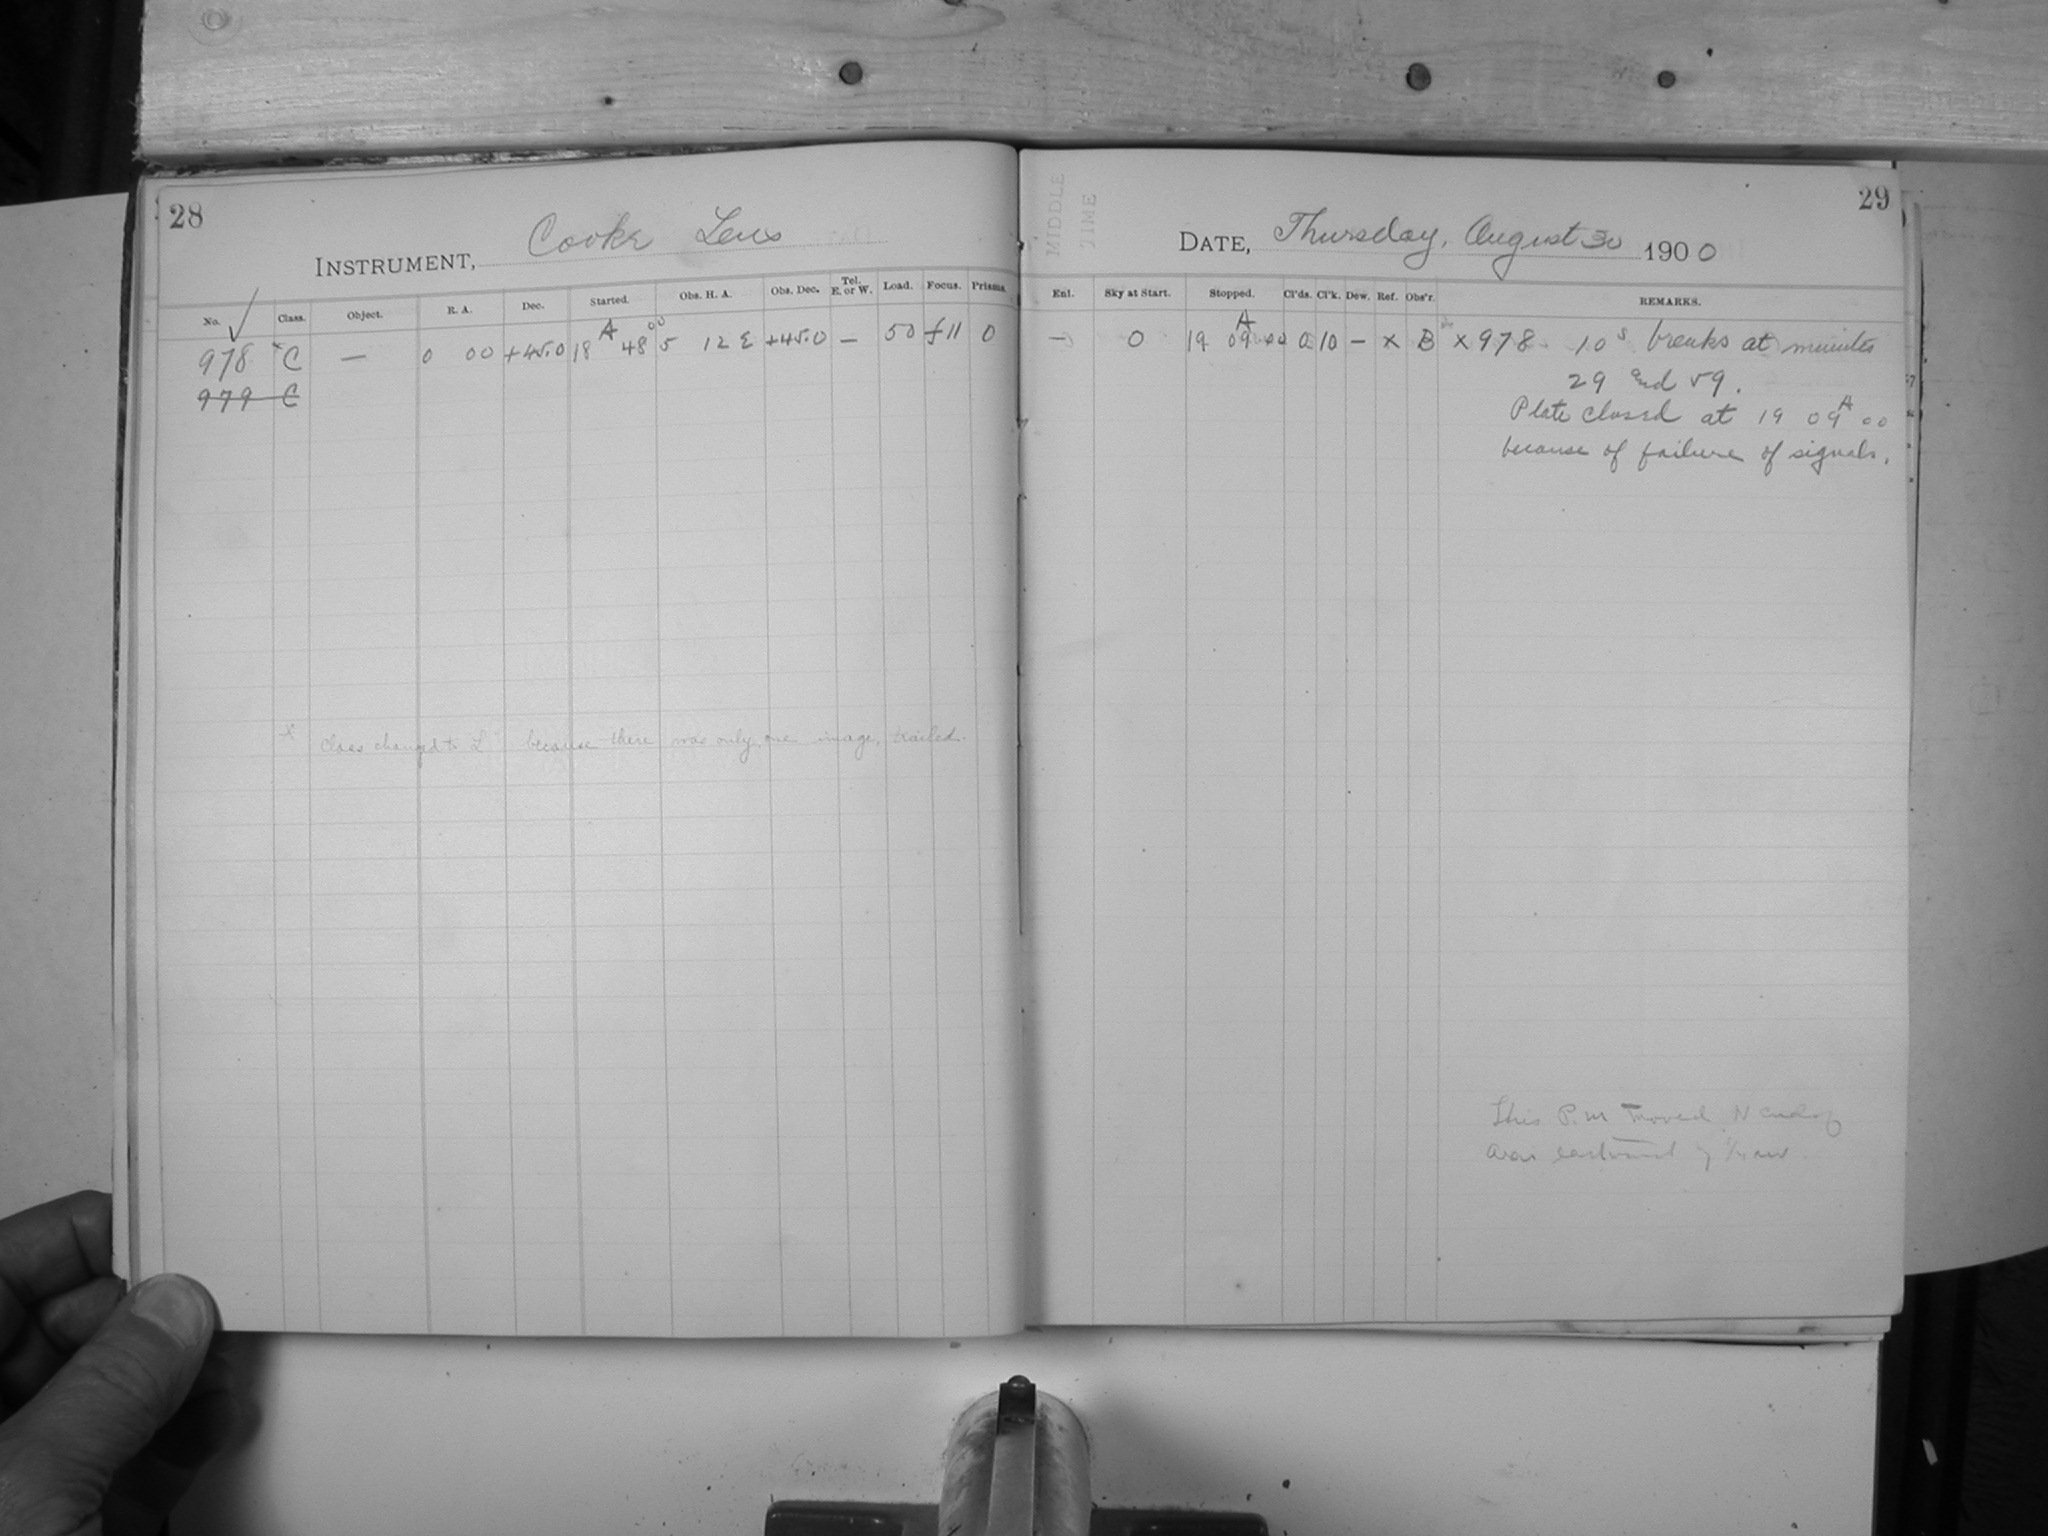 28
INSTRUMENT, Cooke Lens
No. Class. Object. R. A. Dec. Started. Obs. H. A. Obs. Dec. Tel. E. or W. Load. Focus. Prisms
978 *C — 0 00 +45.0 18 A 48 00 5 12 E +45.0 — 50 f 11 0
979 C
* Class changed to L because there was only one image, trailed.
MIDDLE
TIME
29
DATE, Thursday, August 30 1900
Enl. Sky at Start. Stopped. Cl'ds. Cl'k. Dew. Ref. Obs'r. REMARKS.
— 0 19 A 09 00 0 10 — × B × 978 10 s breaks at minutes
29 and 59.
Plate closed at 19 09 A 00
because of failure of signals.
This P.M moved N end of
eastward